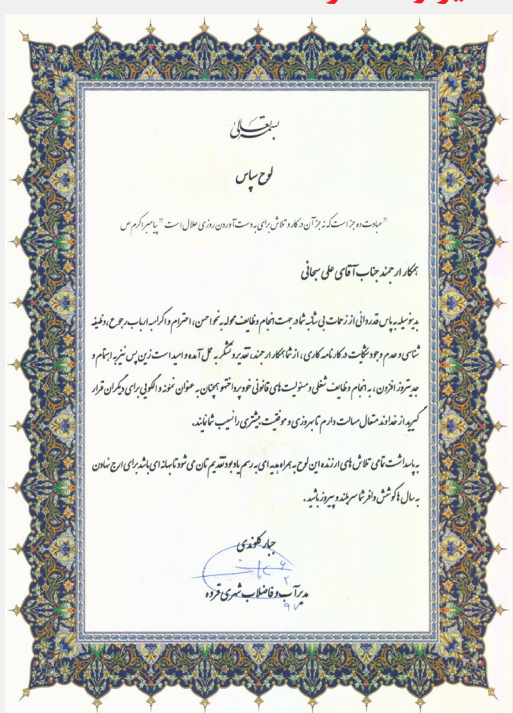 بسمه تعالی
لوح سپاس
"عبادت ده جز است که نه جز آن در کار و تلاش برای به دست آوردن روزی حلال است" پیامبر اکرم ص
همکار ارجمند جناب آقای علی سبحانی
بدینوسیله به پاس قدردانی از زحمات بی شائبه شما در جهت انجام وظایف محوله به نحو احسن، احترام و اکرام به ارباب رجوع، وظیفه
شناسی و عدم وجود شکایت در کارنامه کاری، از شما همکار ارجمند، تقدیر و تشکر به عمل آمده و امید است زین پس نیز به اهتمام و
جدیتی روز افزون، به انجام وظایف شغلی و مسئولیت های قانونی خود پرداخته و همچنان به عنوان نمونه و الگویی برای دیگران قرار
گیرید از خداوند متعال مسالت دارم تا بهروزی و موفقیت بیشتری را نسیب شما نماید.
به پاسداشت تمامی تلاش های ارزنده این لوح به همراه هدیه ای به رسم یادبود تقدیم تان می شود تا بهانه ای باشد برای ارج نهادن
به سال ها کوشش وافر شما سربلند و پیروز باشید.
جبار کلوندی
مدیر آب و فاضلاب شهری قروه